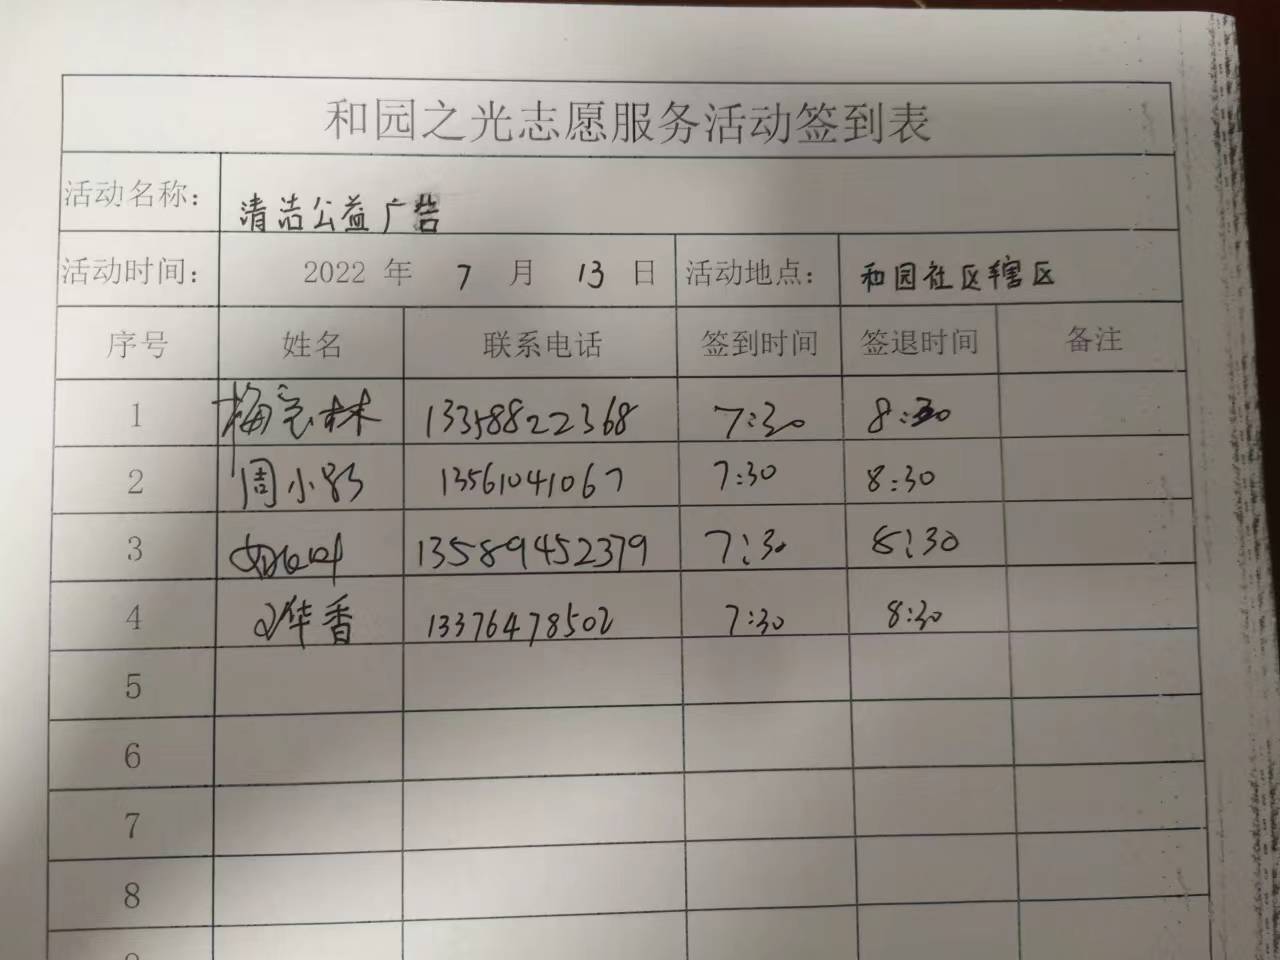 和园之光志愿服务活动签到表
活动名称： 清洁公益广告
活动时间： 2022 年 7 月 13 日 活动地点： 和园社区辖区
序号 姓名 联系电话 签到时间 签退时间 备注
1 梅宝林 13358822368 7:30 8:30
2 周小影 13561041067 7:30 8:30
3 13589452379 7:30 8:30
4 华香 13376478502 7:30 8:30
5
6
7
8